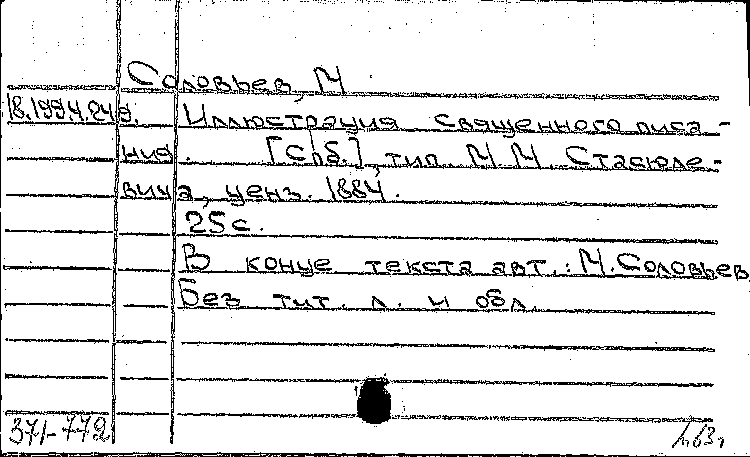 Соловьев, М.
18.199.4.249. Иллюстрация священного писа-
ния. [Спб.], тип. М.М. Стасюле-
вича, ценз. 1884.
25 с.
В конце текста авт.: М. Соловьев
Без тит. л. и обл.
371-772